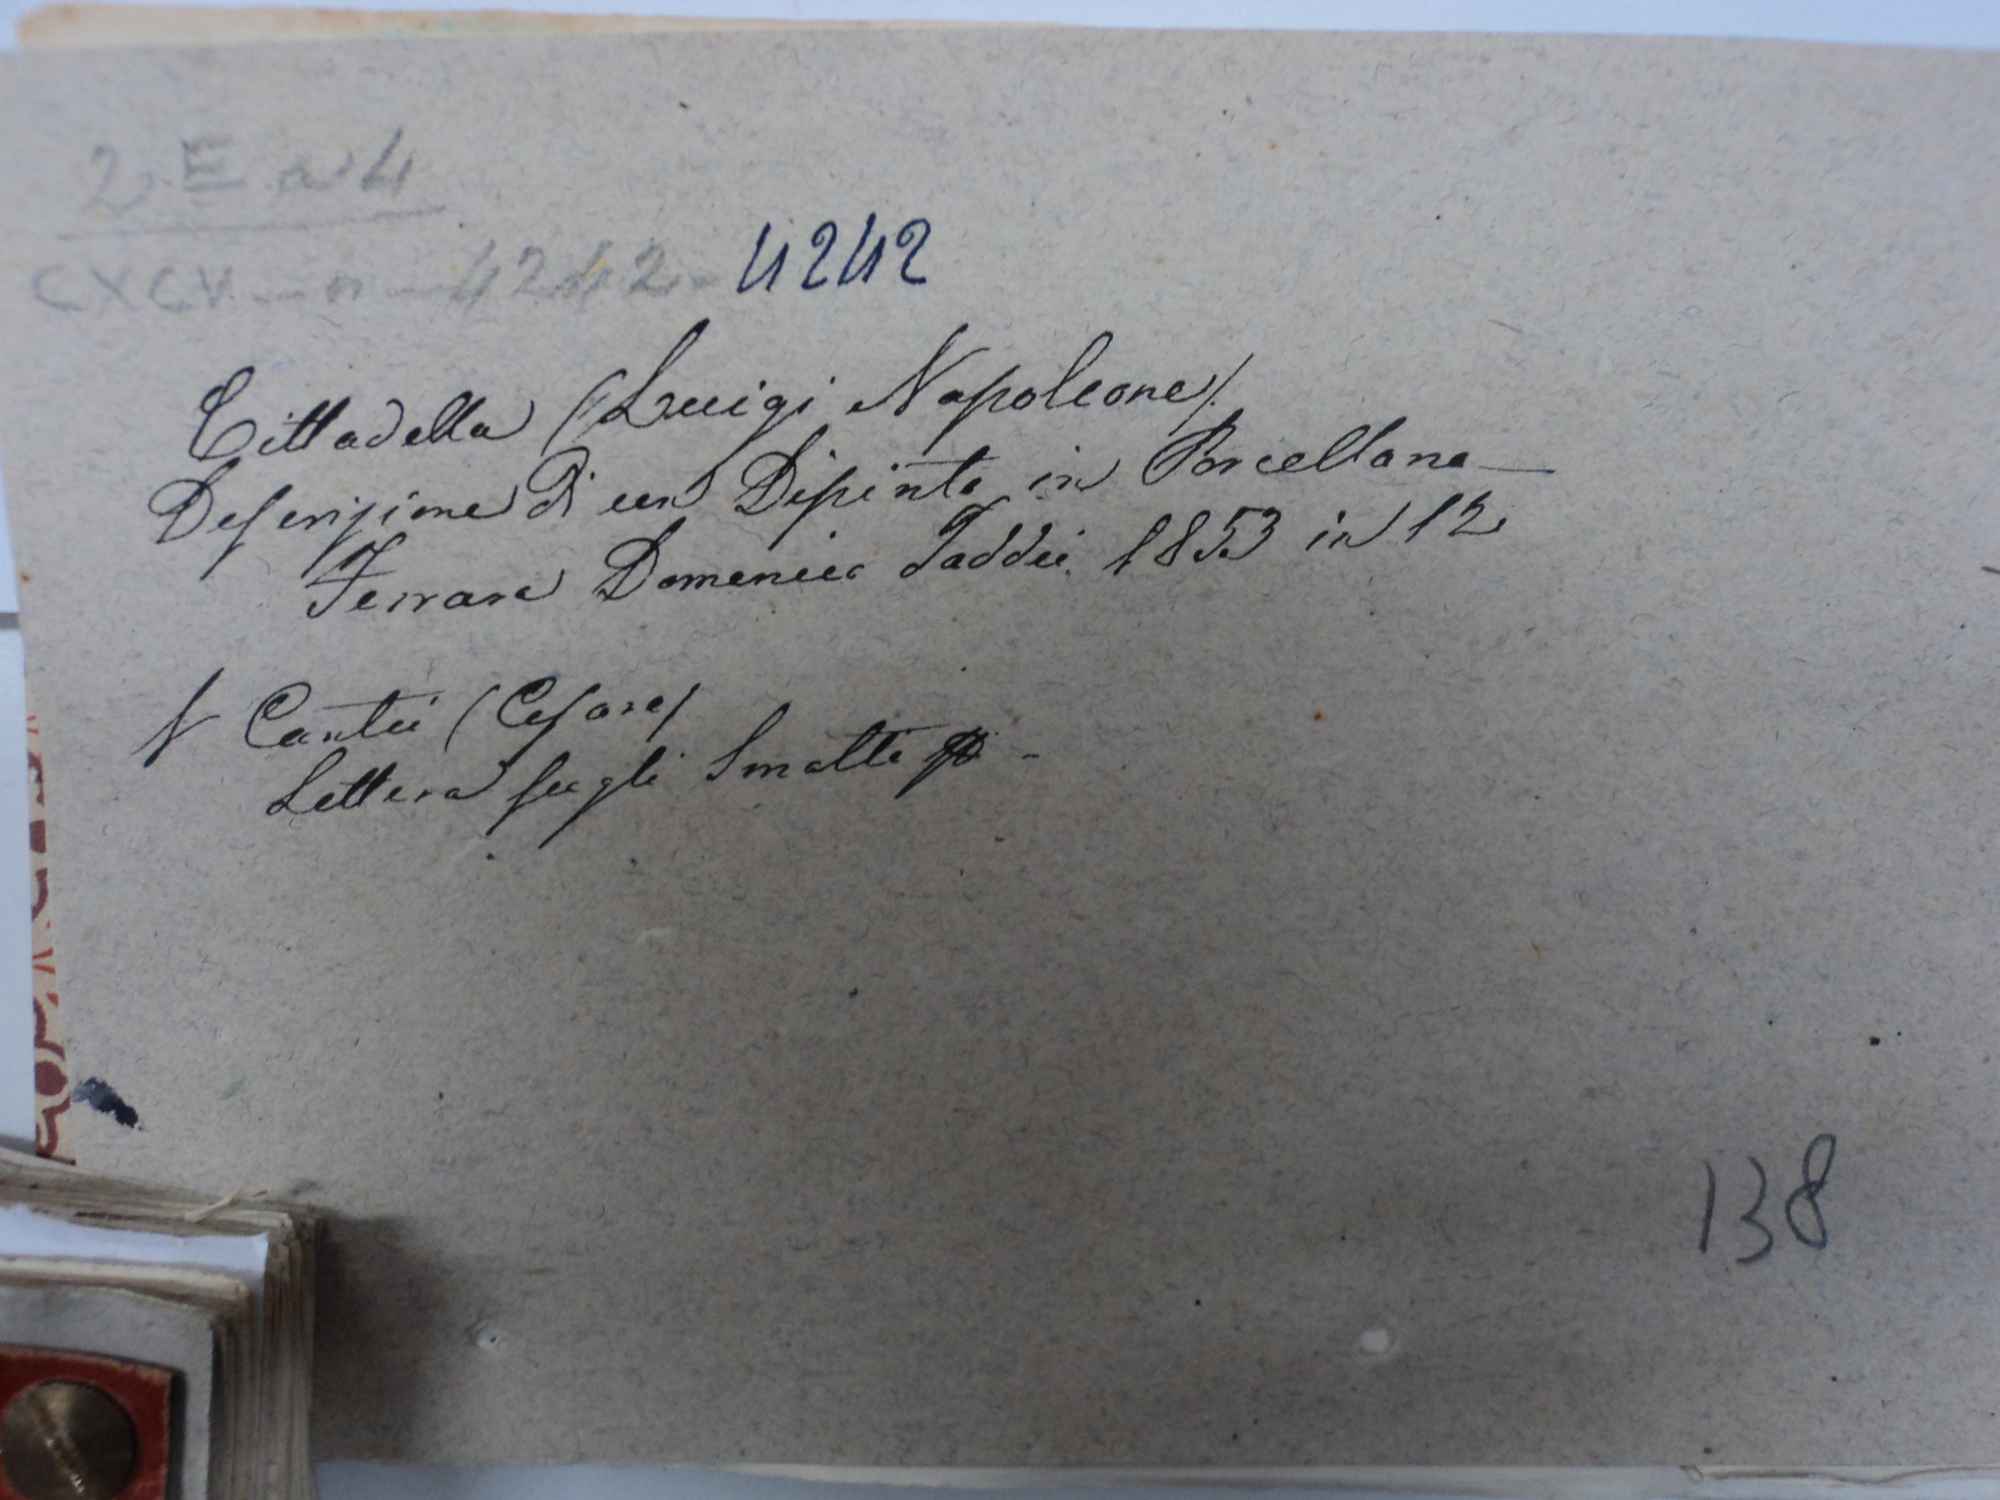 2. E a 4
CXCV - n - 4242 - 4242
Cittadella (Luigi Napoleone).
Descrizione di un Dipinto in Porcellana —
Ferrara Domenico Taddei 1853 in 12
Cantù (Cesare)
Lettera sugli Smalti
138